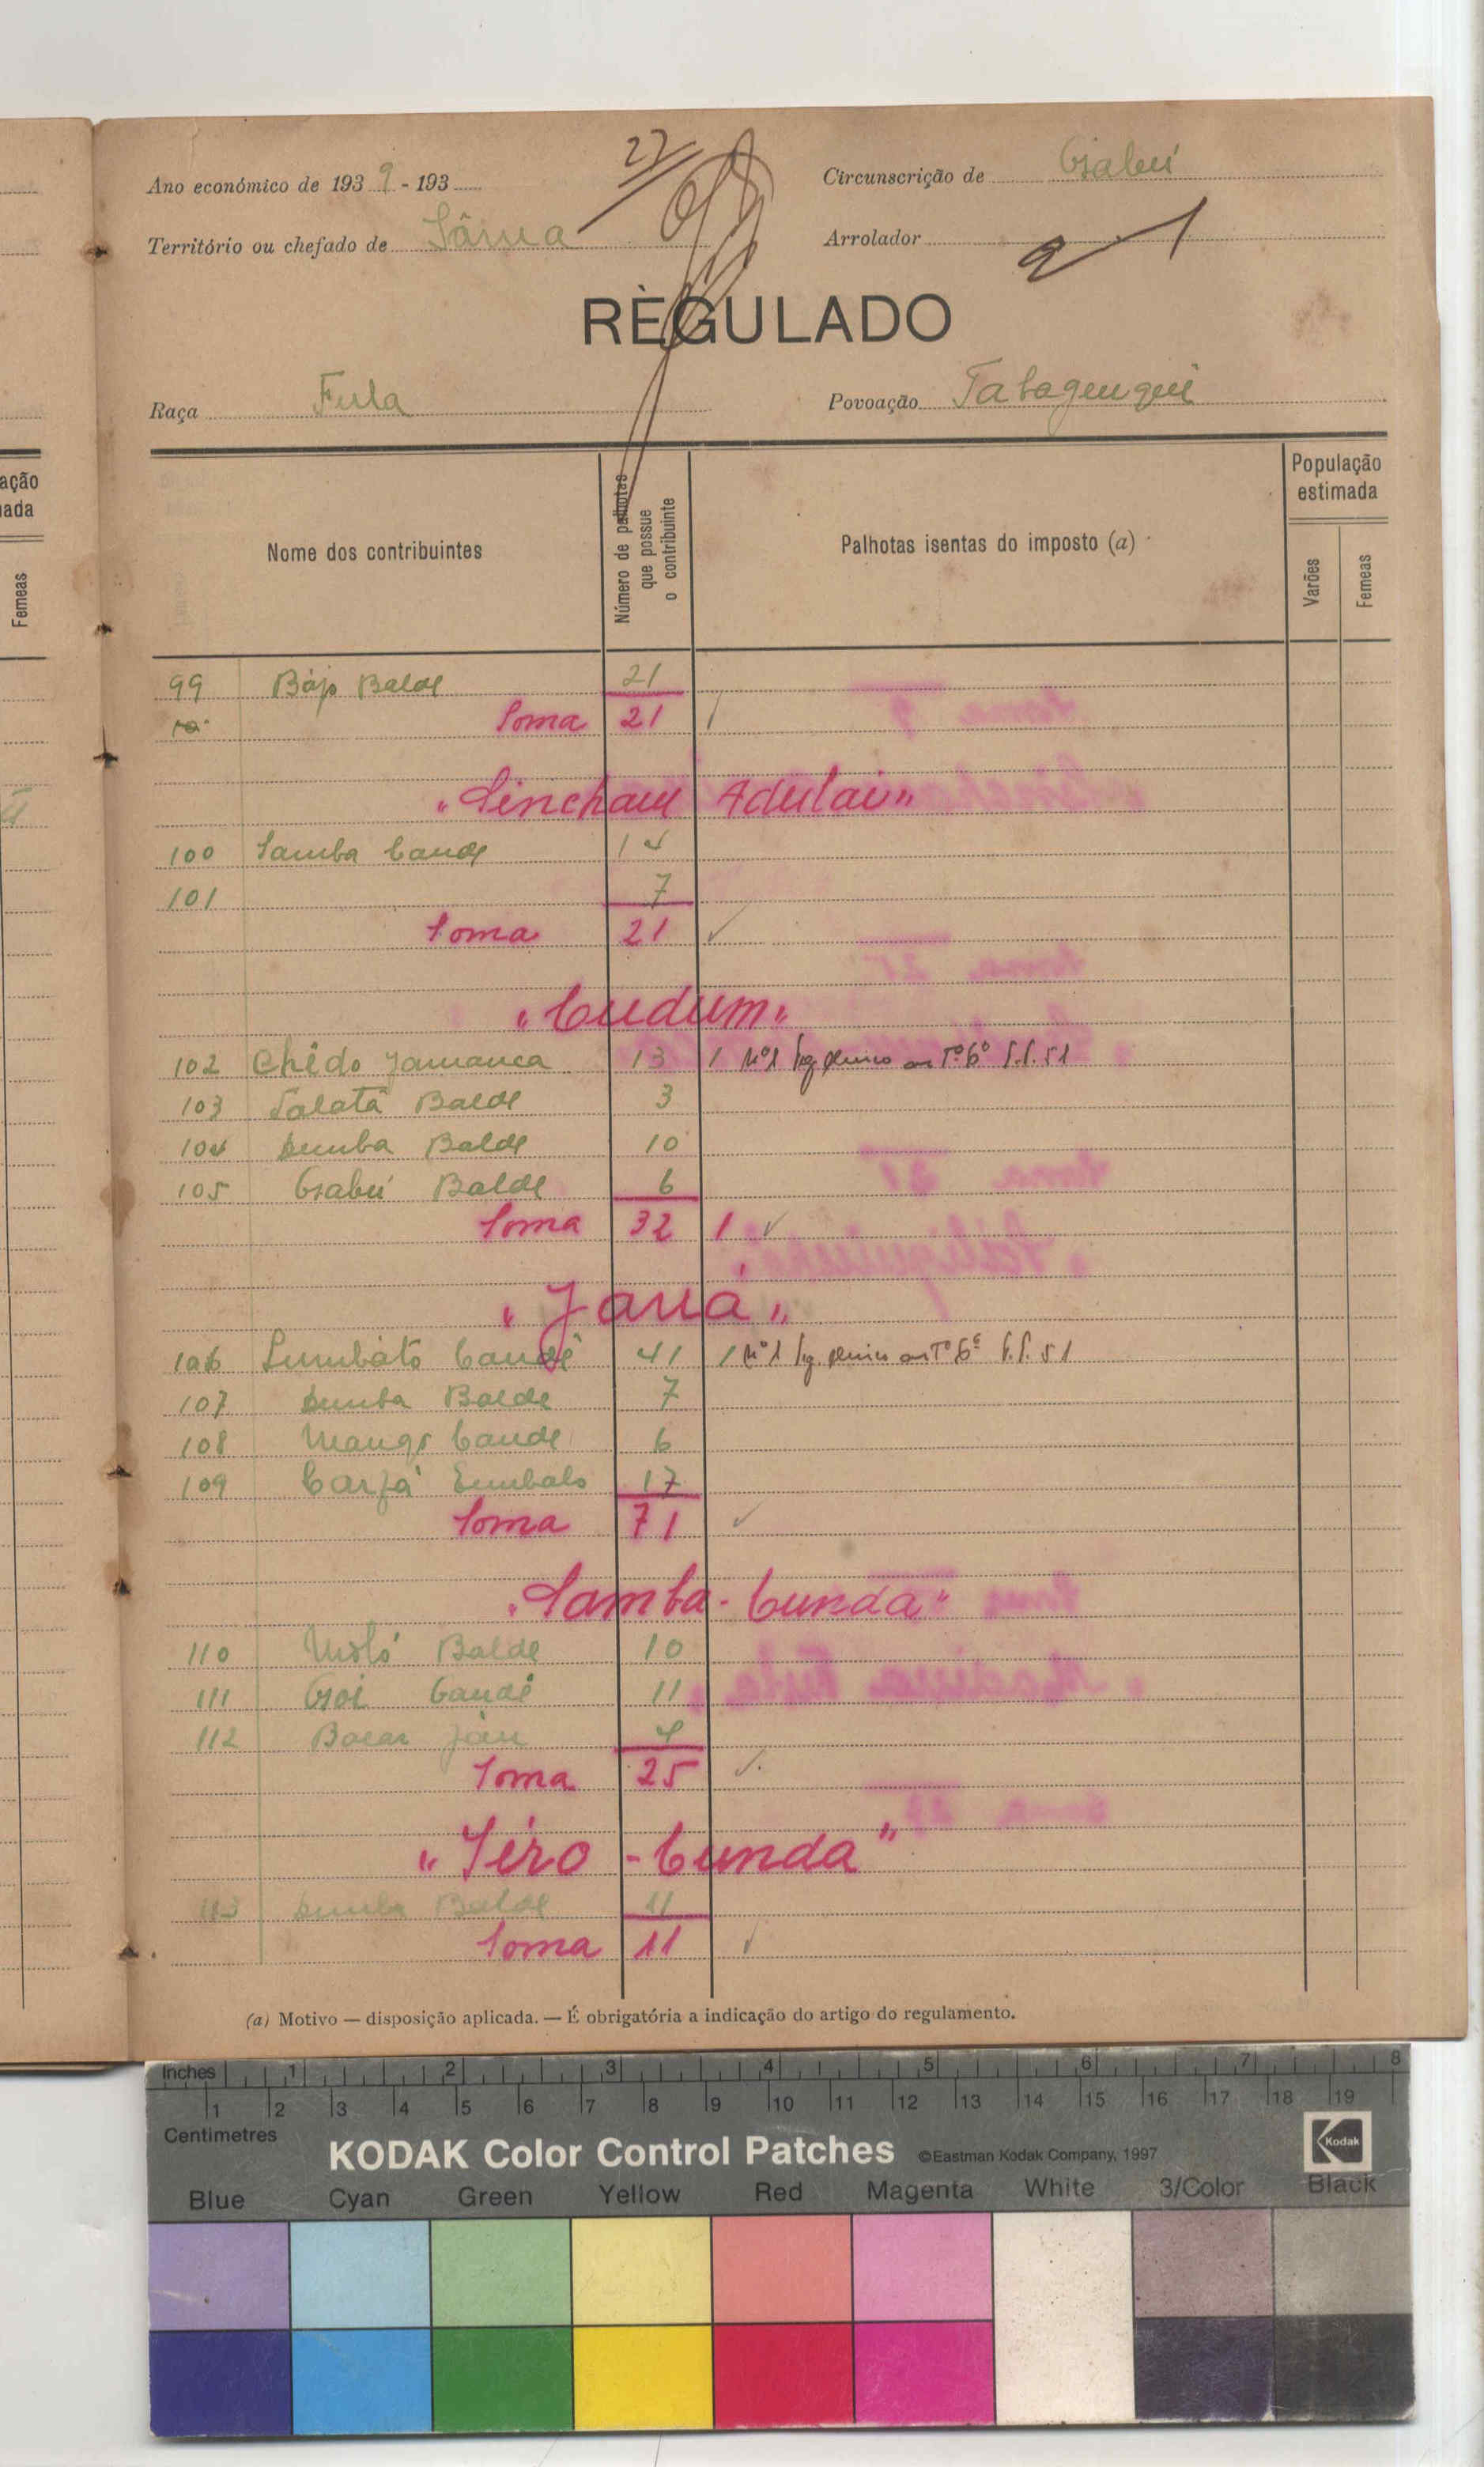 ação
ada
Femeas
27
Ano económico de 193 9 - 193
Circunscrição de Gabú
Território ou chefado de Sâma
Arrolador
RÈGULADO
Raça Fula
Povoação
Nome dos contribuintes
Número de palhotas que possue o contribuinte
Palhotas isentas do imposto (a)
População estimada
Varões
Femeas
99 Balde 21
Soma 21
"Sincham Adulai"
100 Samba Cande 14
101 7
Soma 21
"Cudum"
102 Chêdo Jamanca 13 1 Nº1
103 Salatâ Balde 3
104 Demba Balde 10
105 Gabú Balde 6
Soma 32 1
"Janá"
106 Candé 41 1 Nº1
107 Demba Balde 7
108 Cande 6
109 Embalo 17
Soma 71
"Samba-Cunda"
110 Moló Balde 10
111 Candé 11
112 Bocar 4
Soma 25
"Iéro-Cunda"
113 Demba Balde 11
Soma 11
(a) Motivo — disposição aplicada. — É obrigatória a indicação do artigo do regulamento.
Inches 1 2 3 4 5 6 7 8
1 2 3 4 5 6 7 8 9 10 11 12 13 14 15 16 17 18 19
Centimetres
KODAK Color Control Patches ©Eastman Kodak Company, 1997 Kodak
Blue Cyan Green Yellow Red Magenta White 3/Color Black